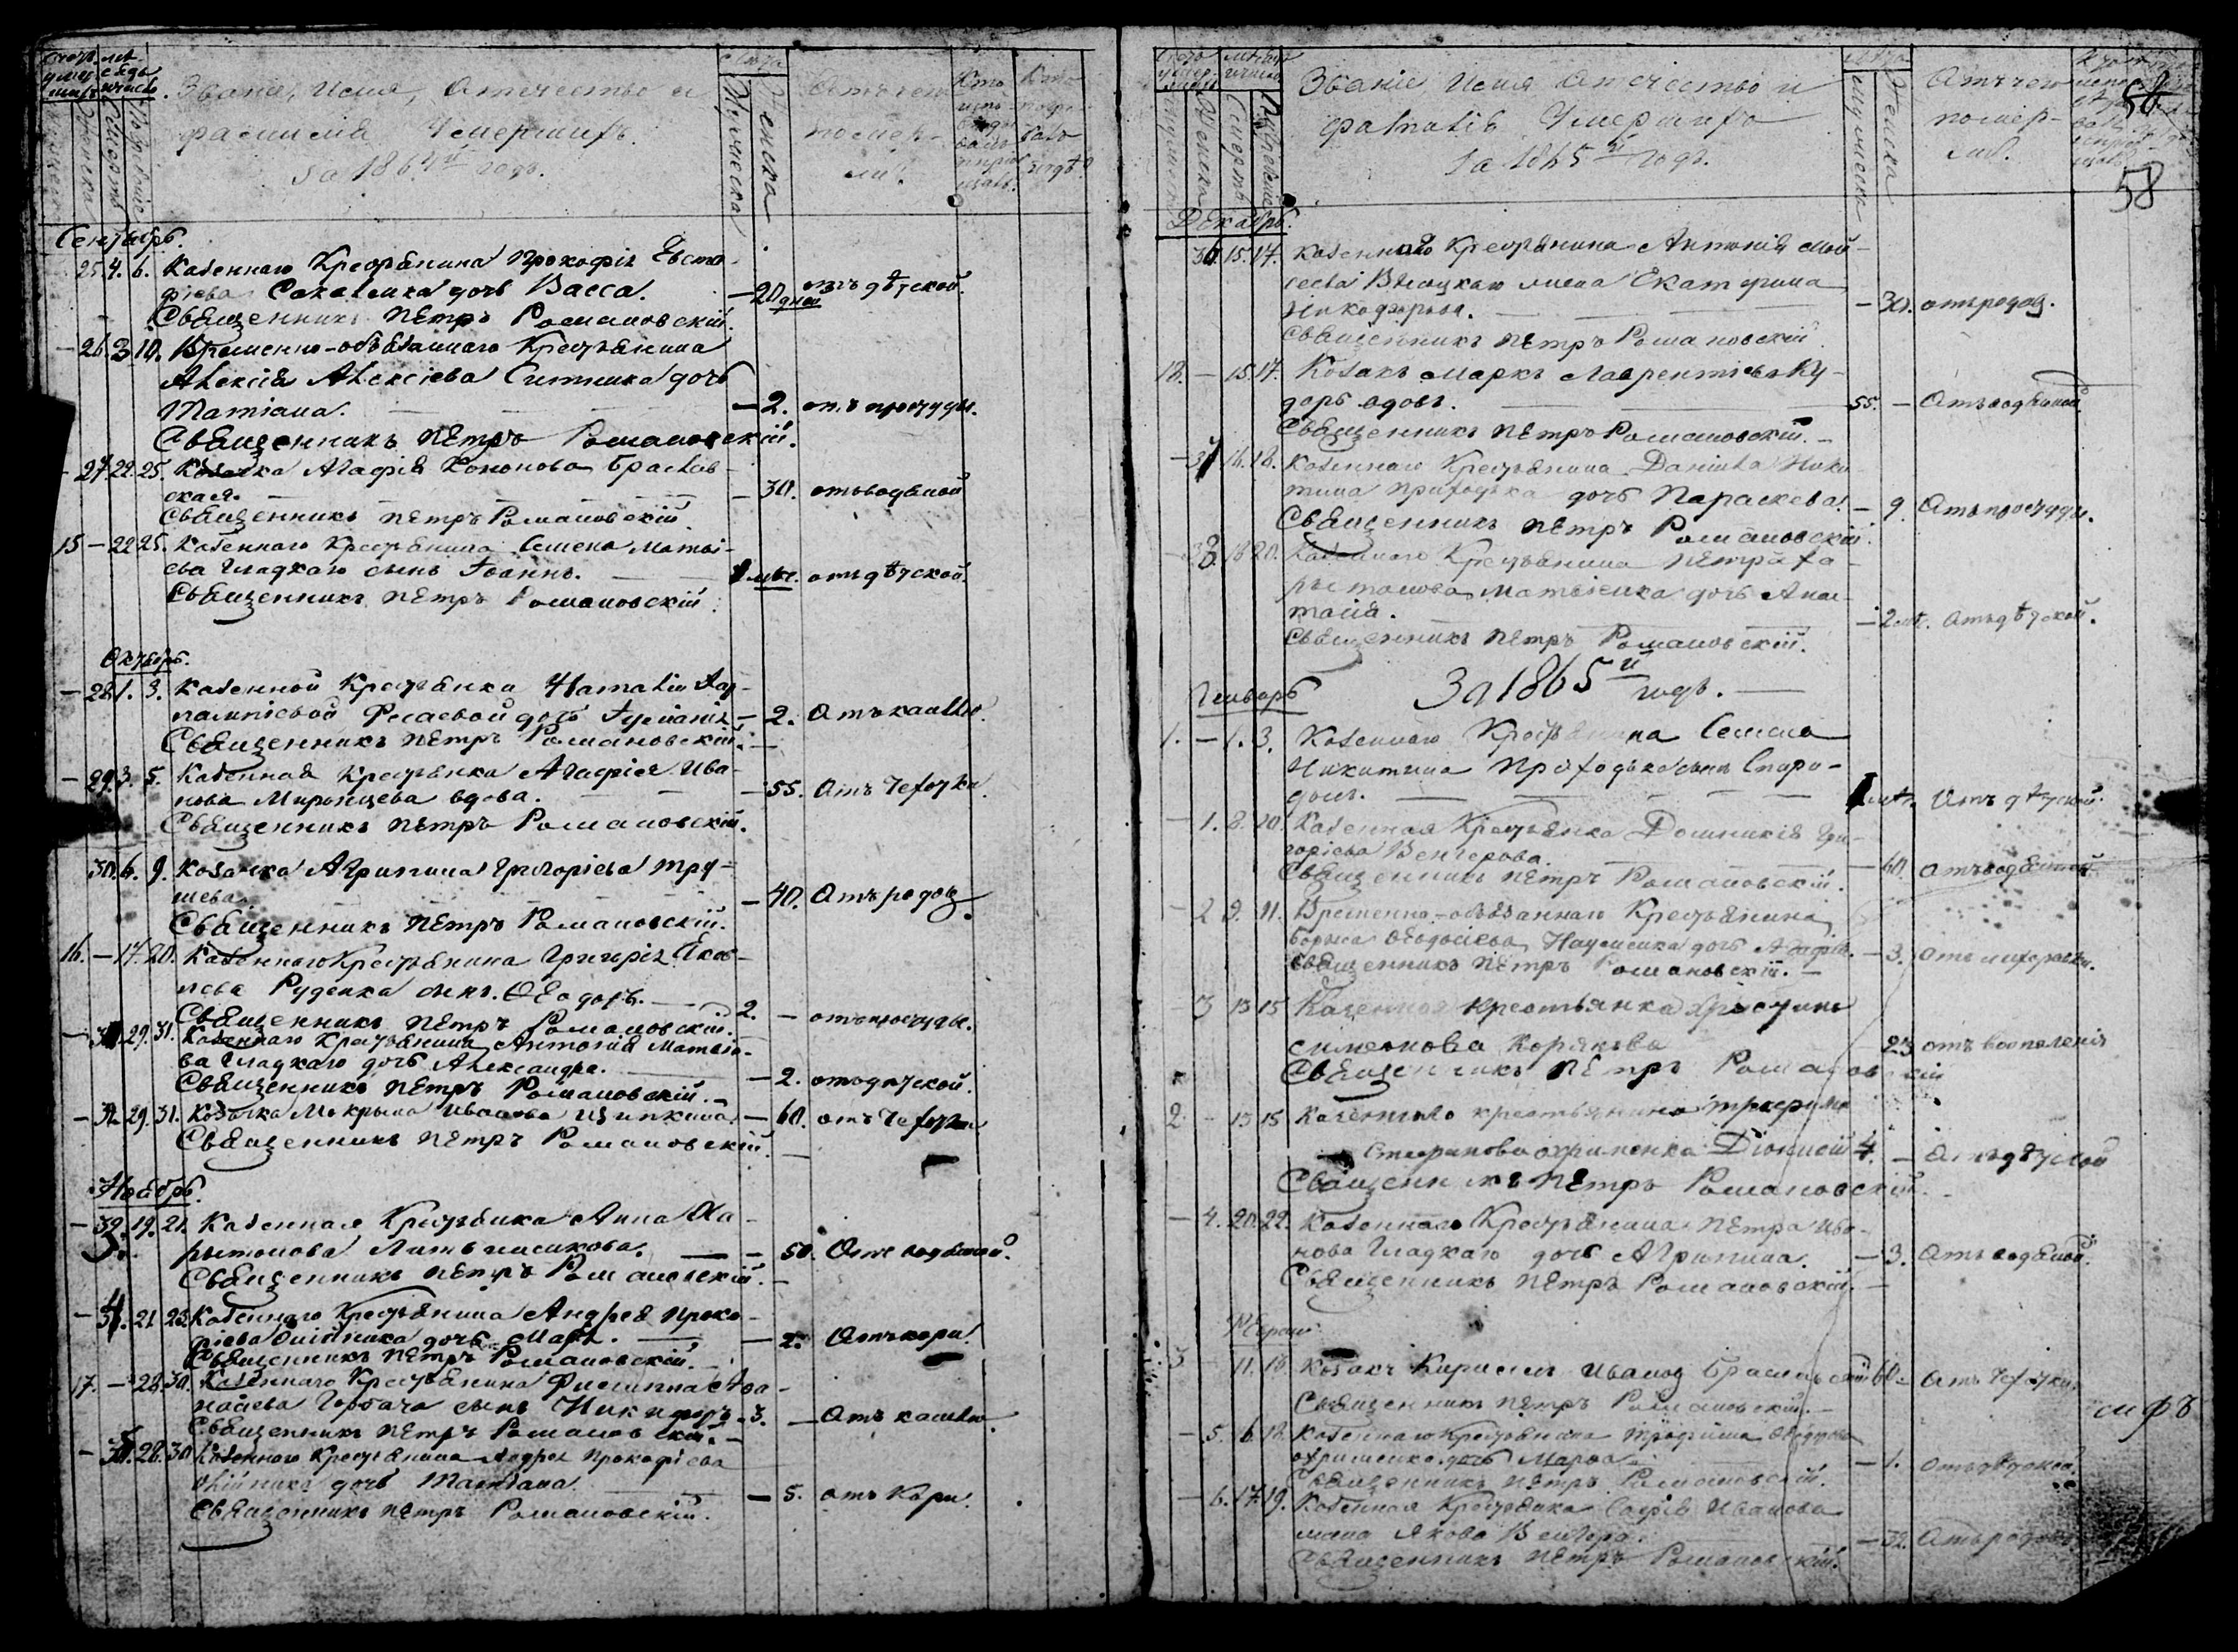 Званіе, Имя, Отечество и
фамилія Умершихъ.
за 1864й годъ.
Мужеска
Женска
помер-
ли?
Сентябрь.
25. 4. 6. Казеннаго Крестьянина Прокофія Евста-
фіева дочь Васса. — 20 дней отъ дѣтской.
Священникъ Петръ Романовскій.
— 26. 3. 10. Временно-обязаннаго Крестьянина
Алексія Алексіева Ситника дочь
Татіана. — 2. отъ простуды.
Священникъ Петръ Романовскій.
— 27. 22. 25. Козачка Агафія Кононова Браслав-
ская. — 30. отъ водяной
Священникъ Петръ Романовскій
15 — 22 25. Казеннаго Крестьянина Семена Матвѣ-
ева Гладкаго сынъ Іоаннъ. — отъ дѣтской.
Священникъ Петръ Романовскій.
Октябрь.
— 28. 1. 3. Казенной Крестьянки Наталіи
дочь — 2. Отъ кашлю.
Священникъ Петръ Романовскій.
— 29. 3. 5. Казенная Крестьянка Агафія Ива-
нова Миронцева вдова. — 55. Отъ Чехотки.
Священникъ Петръ Романовскій.
30. 6. 9. Козачка Агрипина Григоріева Тру-
шева. — 40. Отъ родов
Священникъ Петръ Романовскій.
16. — 17. 20. Казеннаго Крестьянина Григорія Яков-
лева Руденка сынъ Ѳеодоръ. — 2. — отъ простуды.
Священникъ Петръ Романовскій.
— 31. 29. 31. Казеннаго Крестьянина Антонія Матвѣе-
ва Гладкаго дочь Александра. — 2. отъ дѣтской.
Священникъ Петръ Романовскій.
— 32. 29. 31. Козачка Макрина Иванова Ципкина. — 60. отъ Чехотки
Священникъ Петръ Романовскій.
Ноябрь.
— 19. 21. Казенная Крестьянка Анна Ха-
ритонова — 50. Отъ водяной.
Священникъ Петръ Романовскій.
— 21 23 Казеннаго Крестьянина Андрея Проко-
фіева Олійника дочь Марія. — 2. Отъ кори.
Священникъ Петръ Романовскій.
17. — 28. 30. Казеннаго Крестьянина Филиппа Афа-
насіева Горбача сынъ Никифоръ 3. — Отъ кашлю
Священникъ Петръ Романовскій.
— 28. 30 Казеннаго Крестьянина Андрея Прокофіева
Олійника дочь Татіана. — 5. отъ Кори.
Священникъ Петръ Романовскій.
Званіе Имя Отечество и
фамилія Умершихъ
за 1865й годъ.
Мужеска
Женска
Отъ чего
помер-
ли.
58
Декабрь.
15. 17. Казеннаго Крестьянина Антонія Мой-
сеева жена Екатерина
Никифорова. — 30. отъ родов.
Священникъ Петръ Романовскій.
18. — 15. 17. Козакъ Маркъ Лаврентіевъ Ку-
дорь вдовъ. 55. — Отъ водяной.
Священникъ Петръ Романовскій. —
— 16. 18. Казеннаго Крестьянина Даніила Ники-
тина Приходька дочь Параскева. — 9. Отъ простуды.
Священникъ Петръ Романовскій.
18 20. Казеннаго Крестьянина Петра Ха-
ритонова Матвіенка дочь Анас-
тасія. — Отъ дѣтской.
Священникъ Петръ Романовскій.
За 1865й годъ. —
Генварь
1. — 1. 3. Казеннаго Крестьянина Семена
Никитина Приходька сынъ Спири-
донъ. — Отъ дѣтской.
— 1. 8. 10. Казенная Крестьянка Домникія Гри-
горіева Венгерова. — 60. отъ водяной
Священникъ Петръ Романовскій.
— 2 9. 11. Временно-обязаннаго Крестьянина
Бориса Ѳеодосіева Науменка дочь Агафія. — 3. Отъ лихорадки.
Священникъ Петръ Романовскій. —
— 3 13 15 Казенная крестьянка Христина
Симеонова Корякова 23 отъ воспаленія
Священникъ Петръ Романовскій
2. — 13 15 Казеннаго крестьянина Трофима
Стефанова Охрименка Діонисій 4. — Отъ дѣтской
Священникъ Петръ Романовскій.
— 4. 20. 22. Казеннаго Крестьянина Петра Ива-
нова Гладкаго дочь Агрипина. — 3. Отъ водяной.
Священникъ Петръ Романовскій. —
3 — Козакъ Кирилъ Иванов Браславскій 60 — Отъ Чехотки.
Священникъ Петръ Романовскій. —
— 5. 16. 18. Казеннаго Крестьянина Трофима
Охрименка дочь Марѳа — 1. отъ дѣтской.
Священникъ Петръ Романовскій.
— 6. 17. 19. Казенная Крестьянка Софія Иванова
жена Якова Венгера. — 32. Отъ родов
Священникъ Петръ Романовскій.